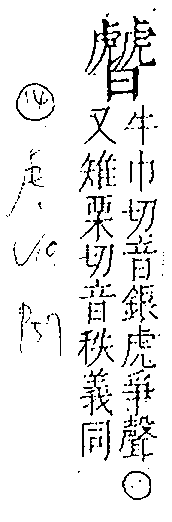 䖐
牛巾切音銀虎爭聲○
又雉栗切音秩義同
14
P57